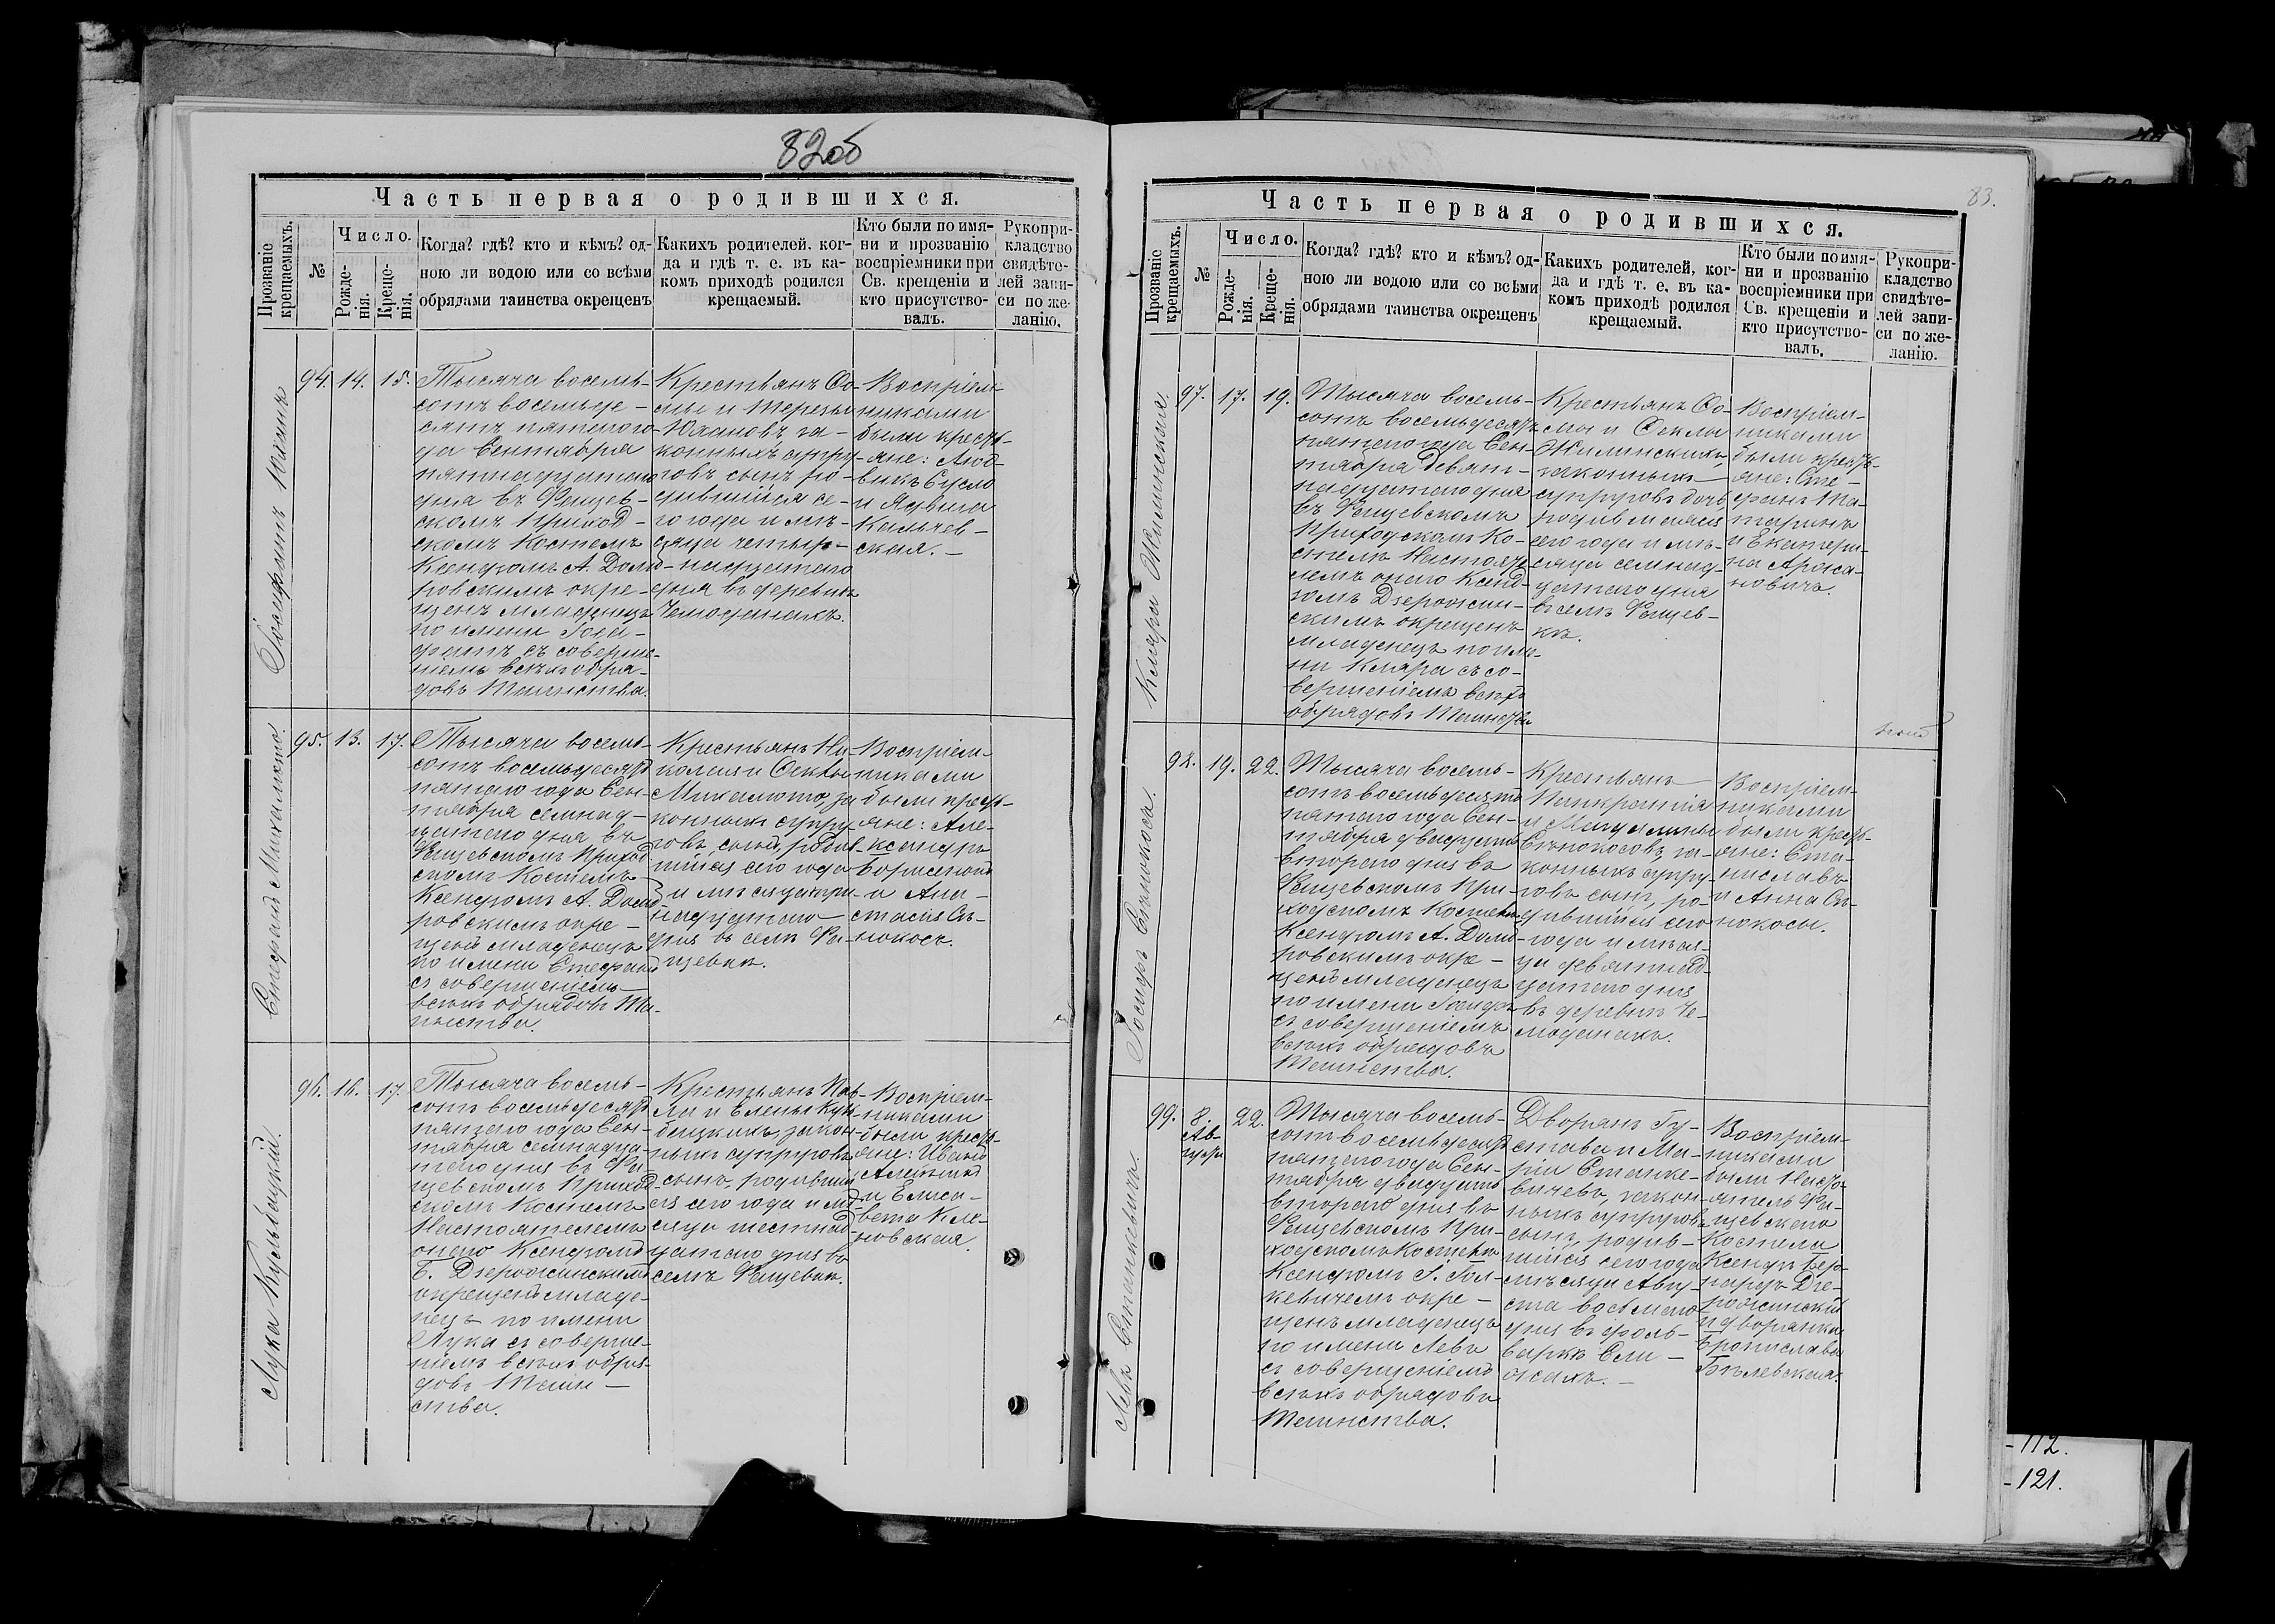 82об
Часть первая о родившихся.
Прозваніе крещаемыхъ.
№
Число.
Рожде-
нія.
Креще-
нія.
Когда? гдѣ? кто и кѣмъ? од-
ною ли водою или со всѣми
обрядами таинства окрещенъ
Какихъ родителей, ког-
да и гдѣ т. е. въ ка-
комъ приходѣ родился
крещаемый.
Кто были по имя-
ни и прозванію
воспріемники при
Св. крещеніи и
кто присутство-
валъ.
Рукопри-
кладство
свидѣте-
лей запи-
си по же-
ланію.
94. 14. 15.
Тысяча восемь-
сотъ восемьде-
сятъ пятого го-
да Сентября
пятнадцатаго
дня въ Фащев-
скомъ приход-
скомъ Костелѣ
Ксендзомъ А. Домб-
ровскимъ окре-
щенъ младенецъ
по имени Іоса-
фатъ съ соверше-
ніемъ всѣхъ обря-
довъ Таинства.
Крестьянъ Ѳо-
мы и Терезы
Юхановъ за-
конныхъ супру-
говъ сынъ ро-
дившійся се-
го года и мѣ-
сяца четыр-
надцатаго
дня въ деревнѣ
Чемоданахъ.
Воспріем-
никами
были кресть-
яне: Люд-
викъ
и Ядвига
ская.
Стефанъ Михалюто.
95. 13. 17.
Тысяча восемь-
сотъ восемьдесятъ
пятаго года Сен-
тября семнад-
цатаго дня въ
Фащевскомъ приход-
скомъ Костелѣ
Ксендзомъ А. Домб-
ровскимъ окре-
щенъ младенецъ
по имени Стефанъ
съ совершеніемъ
всѣхъ обрядовъ Та-
инства.
Крестьянъ Ни-
колая и Ѳеклы
Михалюто, за-
конныхъ супру-
говъ, сынъ, родив-
шійся сего года
и мѣсяца три-
надцатаго
дня въ селѣ Фа-
щевкѣ.
Воспріем-
никами
были кресть-
яне: Але-
ксандръ
и Ана-
стасія Сѣ-
нокосъ.
96. 16. 17.
Тысяча восемь-
сотъ восемьдесятъ
пятаго года Сен-
тября семнадца-
таго дня въ Фа-
щевскомъ приход-
скомъ Костелѣ
Настоятелемъ
онаго Ксендзомъ
Б. Дзеровжинскимъ
окрещенъ младе-
нецъ по имени
Лука съ соверше-
ніемъ всѣхъ обря-
довъ Таин-
ства.
Крестьянъ Пав-
ла и Елены
законныхъ супруговъ
сынъ, родившій-
ся сего года и мѣ-
сяца шестнад-
цатаго дня въ
селѣ Фащевкѣ.
Воспріем-
никами
были кресть-
яне: Иванъ
и Елиса-
вета
83.
Часть первая о родившихся.
Прозваніе крещаемыхъ.
№
Число.
Рожде-
нія.
Креще-
нія.
Когда? гдѣ? кто и кѣмъ? од-
ною ли водою или со всѣми
обрядами таинства окрещенъ
Какихъ родителей, ког-
да и гдѣ т. е. въ ка-
комъ приходѣ родился
крещаемый.
Кто были по имя-
ни и прозванію
воспріемники при
Св. крещеніи и
кто присутство-
валъ.
Рукопри-
кладство
свидѣте-
лей запи-
си по же-
ланію.
Кляра Жилинская.
97. 17. 19.
Тысяча восемь-
сотъ восемьдесятъ
пятаго года Сен-
тября девят-
надцатаго дня
въ Фащевскомъ
Приходскомъ Ко-
стелѣ Настояте-
лемъ онаго Ксенд-
зомъ Дзеровжин-
скимъ окрещенъ
младенецъ по име-
ни Кляра съ со-
вершеніемъ всѣхъ
обрядовъ Таинства
Крестьянъ Ѳо-
мы и Ѳеклы
Жилинскихъ,
законныхъ
супруговъ дочь
родившаяся
сего года и мѣ-
сяца семнад-
цатаго дня
въ селѣ Фащев-
кѣ.
Воспріем-
никами
были кресть-
яне: Сте-
фанъ Та-
таринъ
и Екатери-
на
Іосифъ Сѣнокосъ.
98. 19. 22.
Тысяча восемь-
сотъ восемьдесятъ
пятаго года Сен-
тября двадцать
втораго дня въ
Фащевскомъ При-
ходскомъ Костелѣ
Ксендзомъ А. Домб-
ровскимъ окре-
щенъ младенецъ
по имени Іосифъ
съ совершеніемъ
всѣхъ обрядовъ
Таинства.
Крестьянъ
Панкратія
и Магдалины
Сѣнокосовъ, за-
конныхъ супру-
говъ сынъ, ро-
дившійся сего
года и мѣся-
ца девятнад-
цатаго дня
въ деревнѣ Че-
моданахъ.
Воспріем-
никами
были кресть-
яне: Ста-
ниславъ
и Анна Сѣ-
нокосы.
Левъ Станкевичъ.
99. 8. 22.
Ав-
густа
Тысяча восемь-
сотъ восемьдесятъ
пятаго года Сен-
тября двадцать
втораго дня въ
Фащевскомъ При-
ходскомъ Костелѣ
Ксендзомъ
окре-
щенъ младенецъ
по имени Левъ
съ совершеніемъ
всѣхъ обрядовъ
Таинства.
Дворянъ Гу-
става и Ма-
ріи Станке-
вичевъ, закон-
ныхъ супруговъ
сынъ, родив-
шійся сего года
мѣсяца Авгу-
ста восьмаго
дня въ фоль-
варкѣ
Воспріем-
никами
были Насто-
ятель Фа-
щевскаго
Костела
Ксендзъ Бер-
нардъ Дзе-
ровжинскій
и дворянка
Брониславa
Бѣлевская.
-112.
-121.